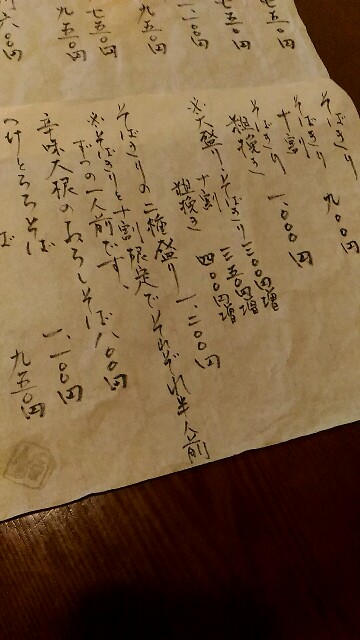 七五〇円
七五〇円
一、一〇〇円
九五〇円
七五〇円
九五〇円
六〇〇円
そばきり 九〇〇円
そばきり
十割 一、〇〇〇円
そばきり
粗挽き
※大盛り そばきり 三〇〇円増
十割 三五〇円増
粗挽き 四〇〇円増
そばきりの二種盛り 一、二〇〇円
※そばきりと十割限定でそれぞれ半人前
ずつの一人前です。
辛味大根のおろしそば 八〇〇円
一、一〇〇円
つけとろろそば 九五〇円